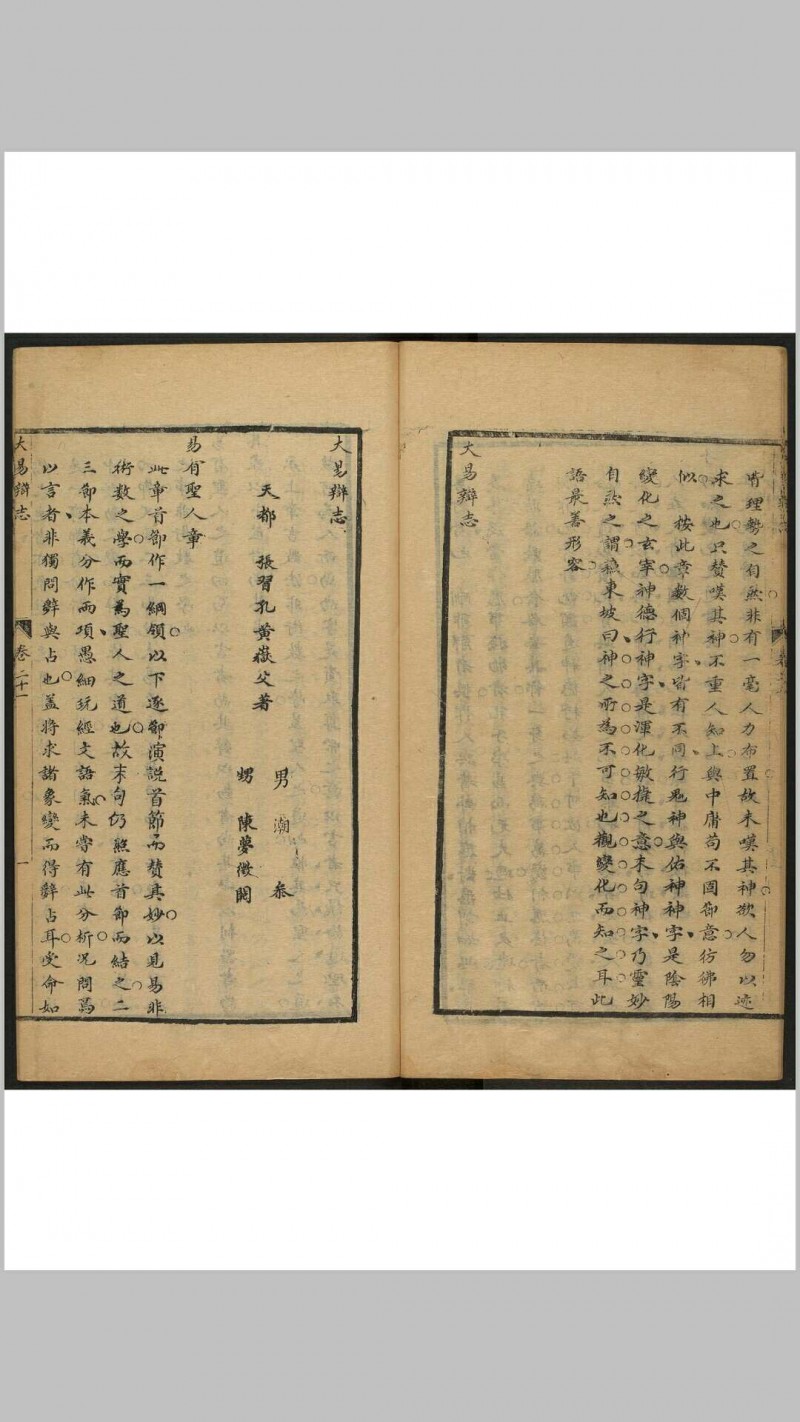 皆理勢之自然非有一毫人力布置故末嘆其神欲人勿以迹
求之也只贊嘆其神不重人知上與中庸苟不固節意彷彿相
似 按此章數個神字皆有不同行鬼神與佑神神字是陰陽
變化之玄宰神德行神字是渾化敏捷之意末句神字乃靈妙
自然之謂蘓東坡曰神之所為不可知也觀變化而知之耳此
語最善形容
大易辯志
大易辯志
天都 張習孔黃嶽父著
男 潮 泰
甥 陳夢徵 閱
易有聖人章
此章首節作一綱領以下逐節演說首節而贊其妙以見易非
術數之學而實為聖人之道也故末句仍照應首節而結之二
三節本義分作兩項愚細玩經文語氣未嘗有此分析况問焉
以言者非獨問辭與占也蓋將求諸象變而得辭占耳受命如
大易辯志 卷二十一 一